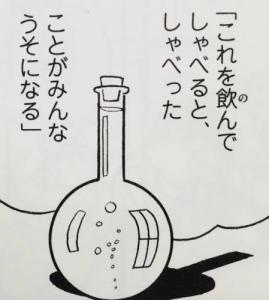 「これを飲んで
しゃべると、
しゃべった
ことがみんな
うそになる」